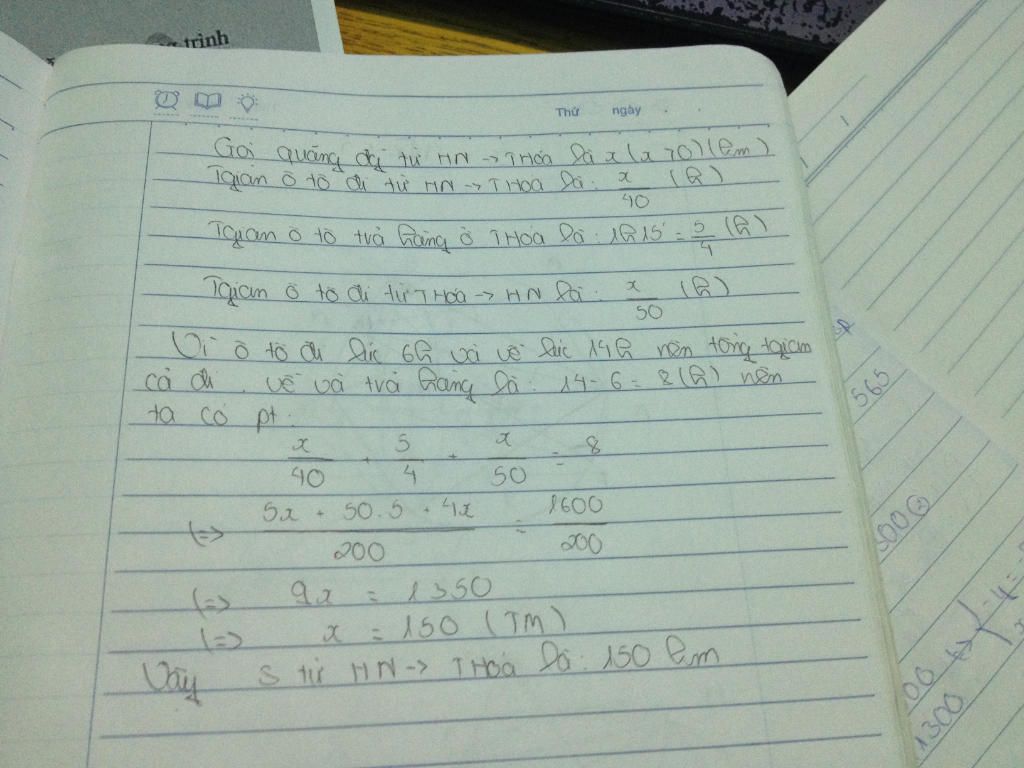 trình
Thứ ngày
Gọi quãng đg từ HN → THoá là x (x > 0) (km)
Tgian ô tô đi từ HN → THoá là: x/40 (h)
Tgian ô tô trả hàng ở THoá là: 1h15' = 5/4 (h)
Tgian ô tô đi từ THoá → HN là: x/50 (h)
Vì ô tô đi lúc 6h và về lúc 14h nên tổng tgian
cả đi, về và trả hàng là: 14 - 6 = 8 (h) nên
ta có pt:
x/40 + 5/4 + x/50 = 8
<=> (5x + 50.5 + 4x)/200 = 1600/200
<=> 9x = 1350
<=> x = 150 (TM)
Vậy S từ HN → THoá là: 150 km
565
500 (2)
1300